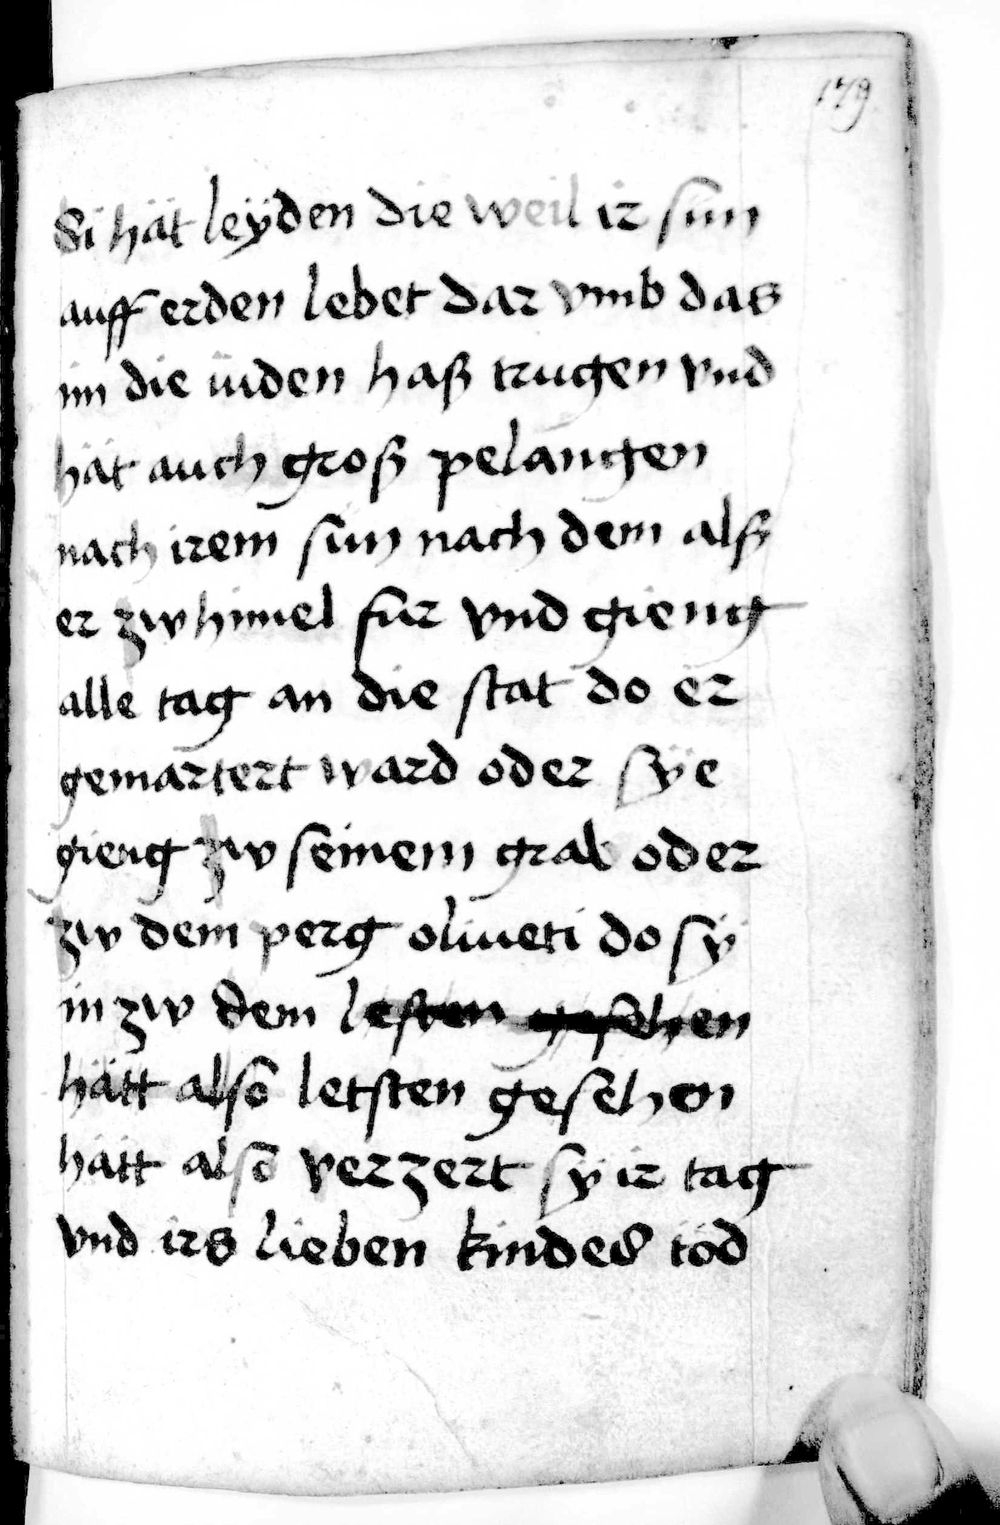 179
Si hät leÿden die weil ir sun
auff erden lebet dar vmb das
im die iuden haß trugen vnd
hät auch groß pelangen
nach irem sun nach dem alß
er zw himel fur vnd gieng
alle tag an die stat do er
gemartert ward oder sÿe
gieng zw seinem grab oder
zw dem perg oliueti do sÿ
in zw dem lesten gesehen
hätt also letsten gesehen
hätt also verzert sÿ ir tag
vnd irs lieben kindes töd